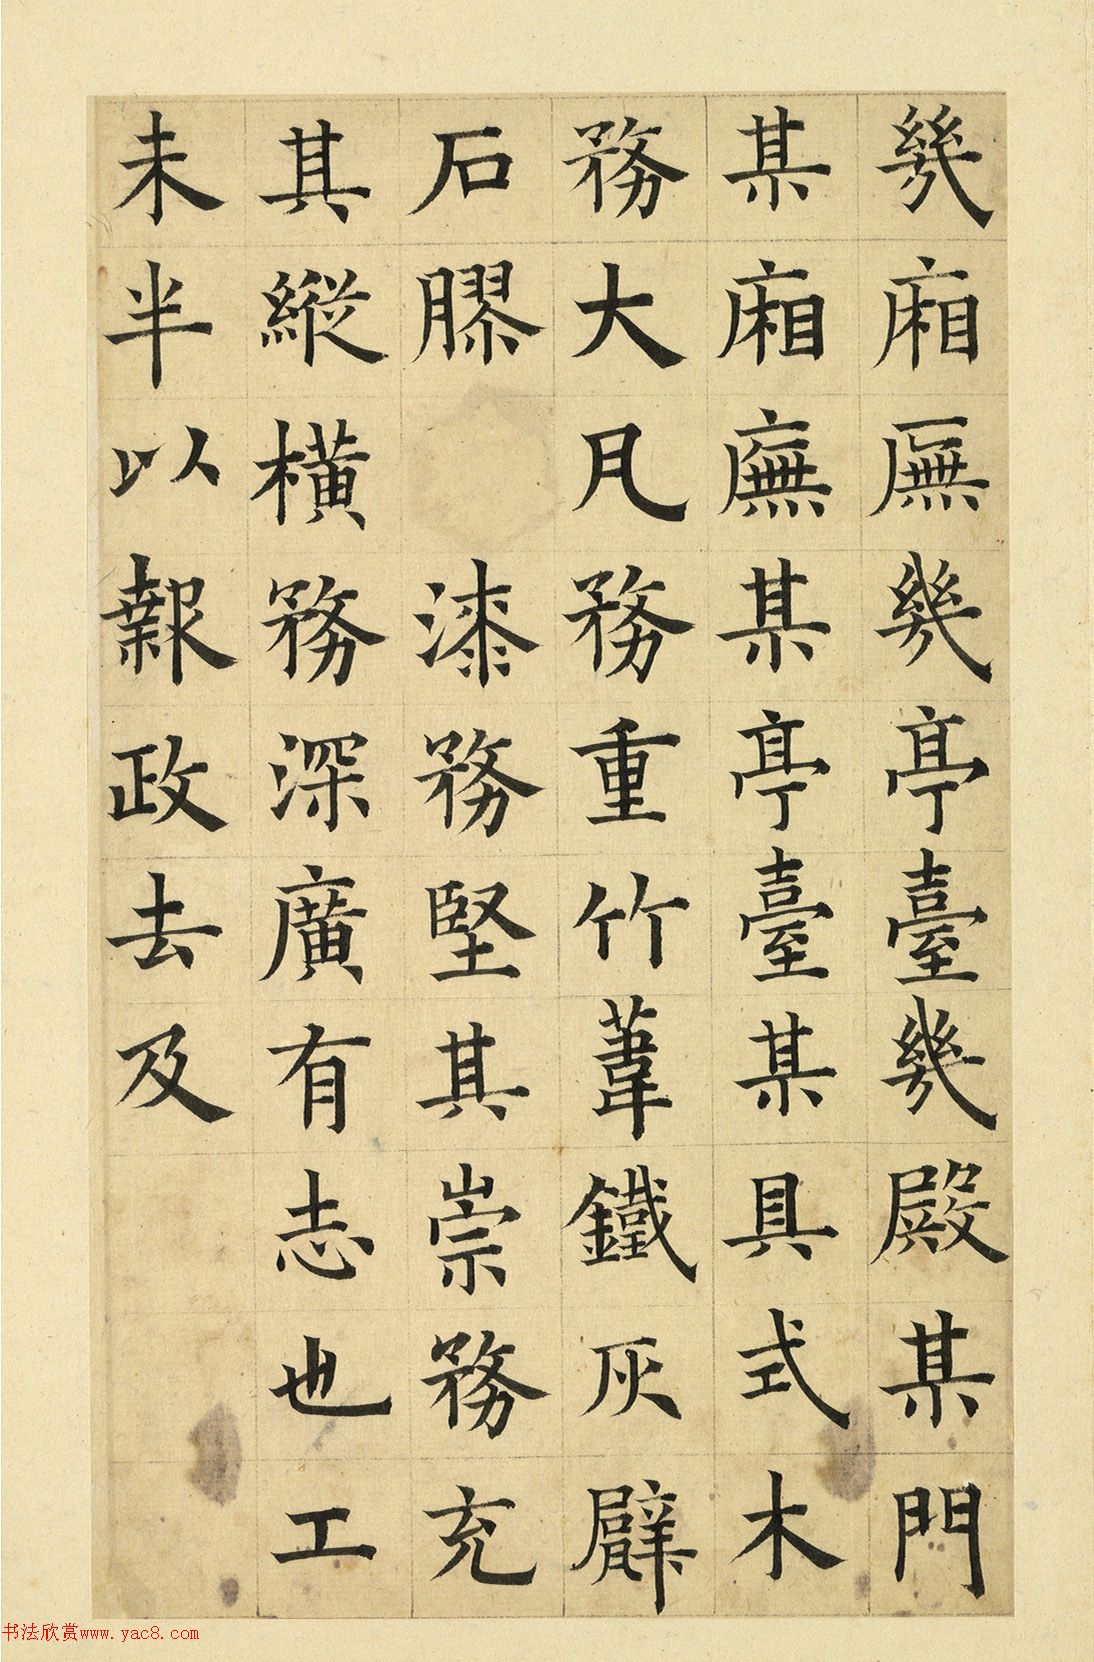 幾廂廡幾亭臺幾殿某門
某廂廡某亭臺某具式木
務大凡務重竹葦鐵灰甓
石膠漆務堅其崇務充
其縱橫務深廣有志也工
未半以報政去及
书法欣赏www.yac8.com